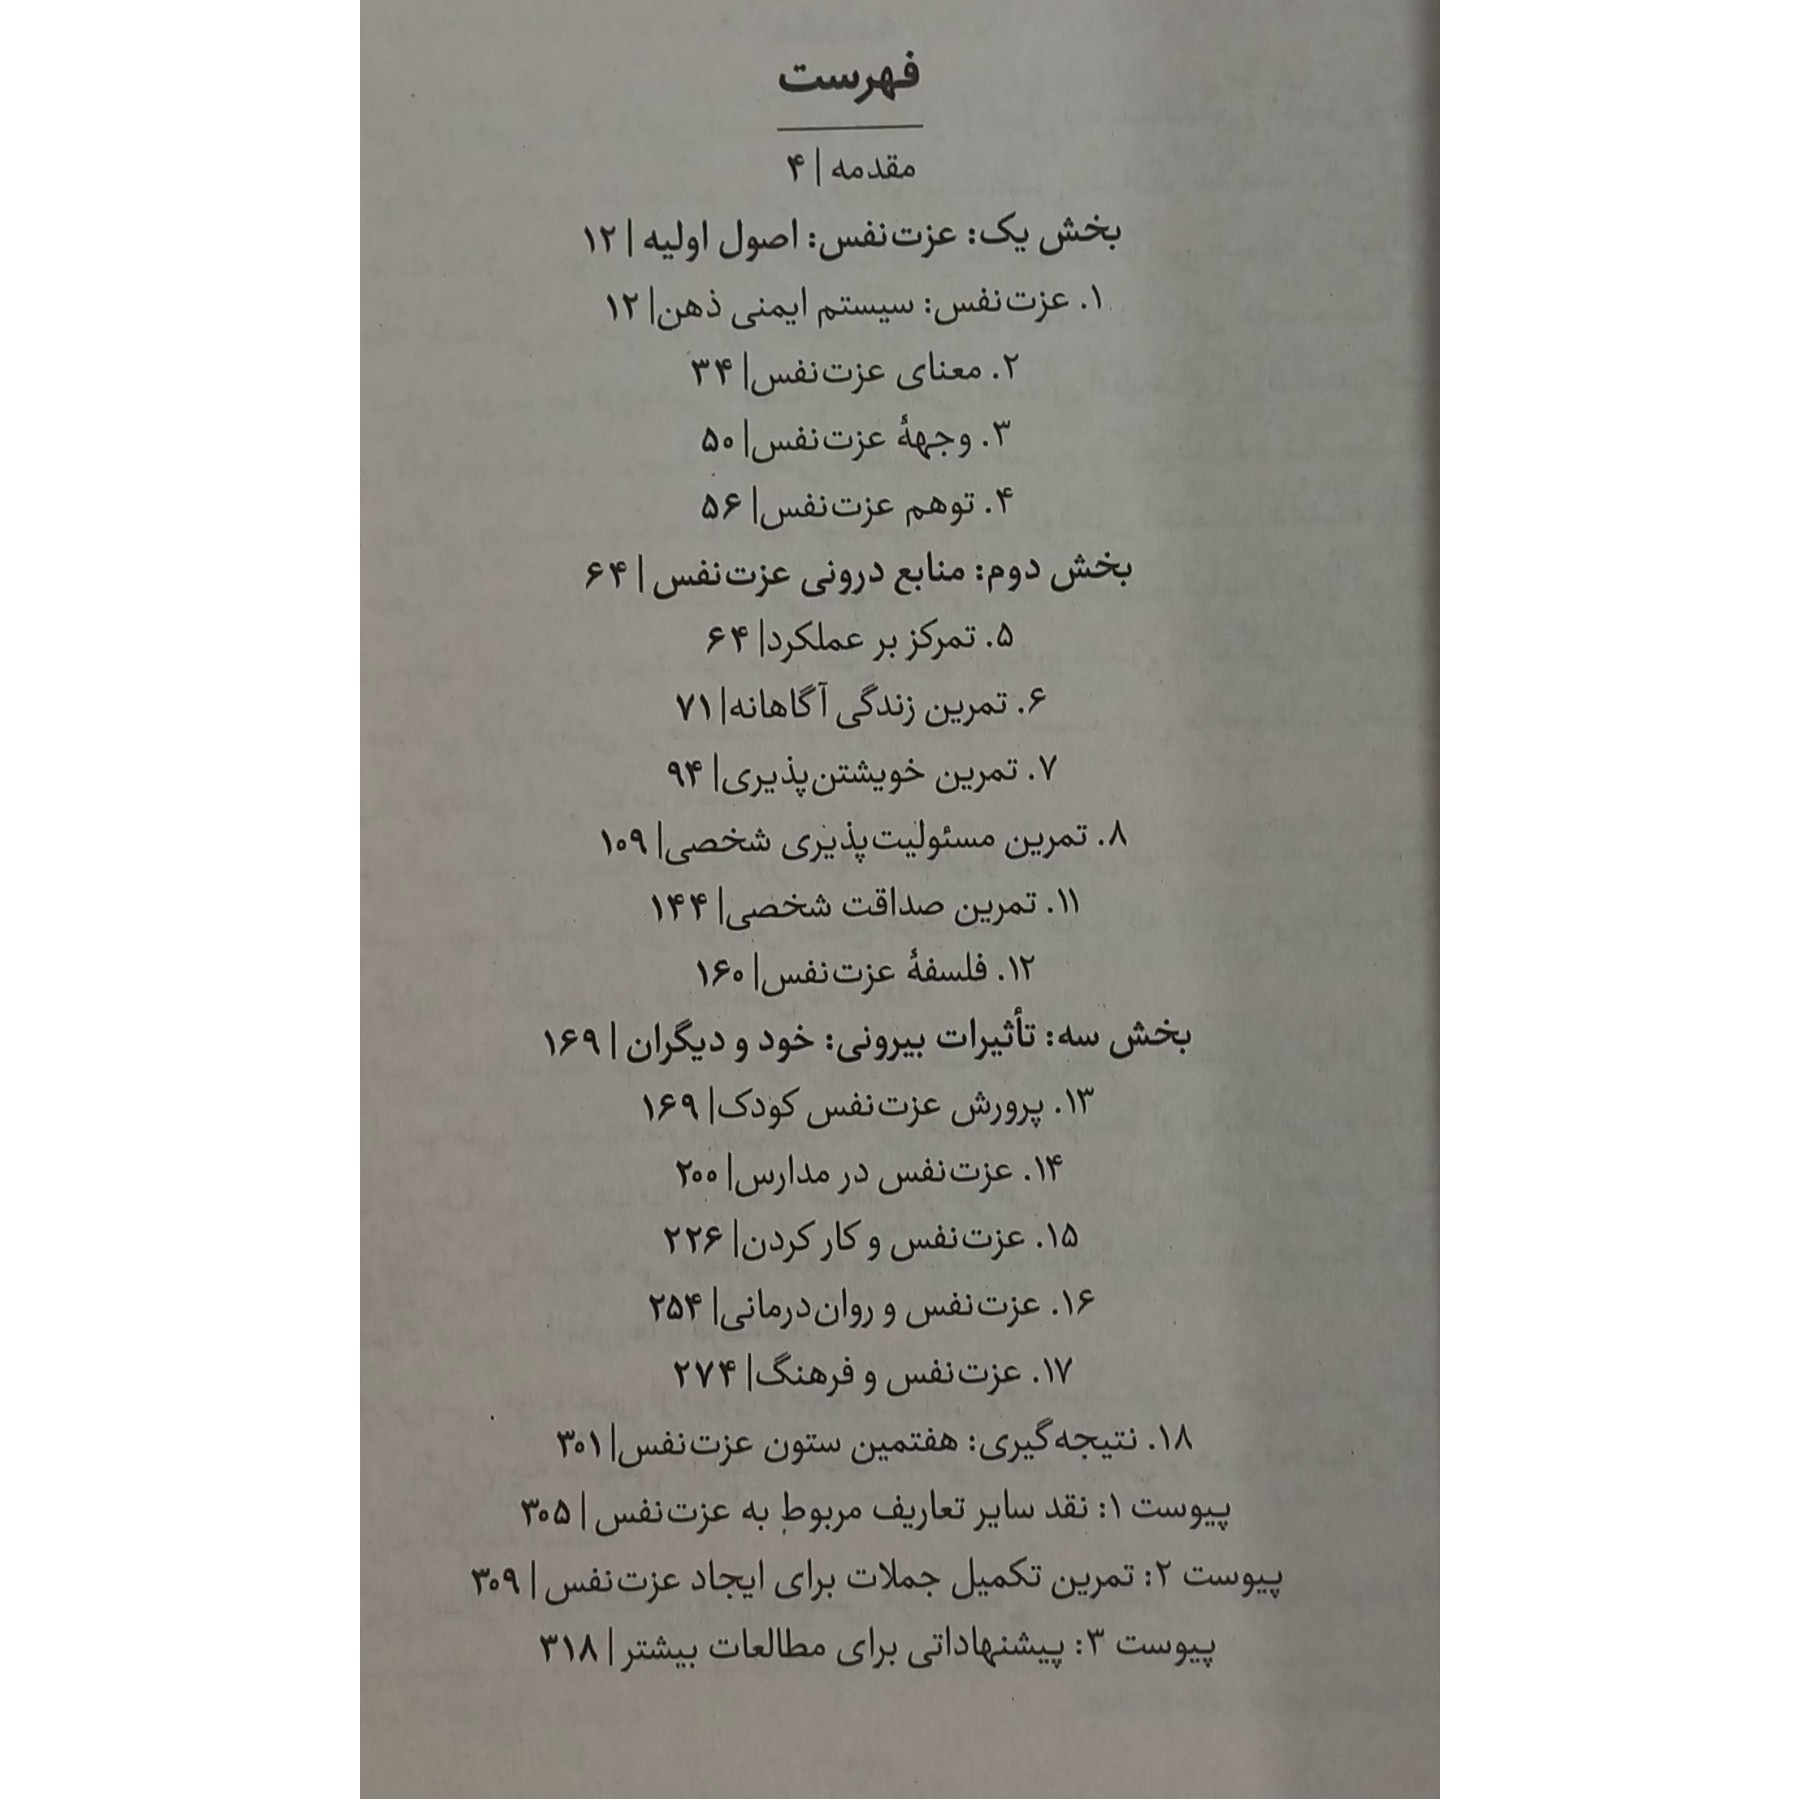 فهرست
مقدمه | ۴
بخش یک: عزت‌نفس: اصول اولیه | ۱۲
۱. عزت‌نفس: سیستم ایمنی ذهن| ۱۲
۲. معنای عزت‌نفس| ۳۴
۳. وجههٔ عزت‌نفس| ۵۰
۴. توهم عزت‌نفس| ۵۶
بخش دوم: منابع درونی عزت‌نفس | ۶۴
۵. تمرکز بر عملکرد| ۶۴
۶. تمرین زندگی آگاهانه| ۷۱
۷. تمرین خویشتن‌پذیری| ۹۴
۸. تمرین مسئولیت‌پذیری شخصی| ۱۰۹
۱۱. تمرین صداقت شخصی| ۱۴۴
۱۲. فلسفهٔ عزت‌نفس| ۱۶۰
بخش سه: تأثیرات بیرونی: خود و دیگران | ۱۶۹
۱۳. پرورش عزت‌نفس کودک| ۱۶۹
۱۴. عزت‌نفس در مدارس| ۲۰۰
۱۵. عزت‌نفس و کار کردن| ۲۲۶
۱۶. عزت‌نفس و روان‌درمانی| ۲۵۴
۱۷. عزت‌نفس و فرهنگ| ۲۷۴
۱۸. نتیجه‌گیری: هفتمین ستون عزت‌نفس| ۳۰۱
پیوست ۱: نقد سایر تعاریف مربوط به عزت‌نفس | ۳۰۵
پیوست ۲: تمرین تکمیل جملات برای ایجاد عزت‌نفس | ۳۰۹
پیوست ۳: پیشنهاداتی برای مطالعات بیشتر | ۳۱۸